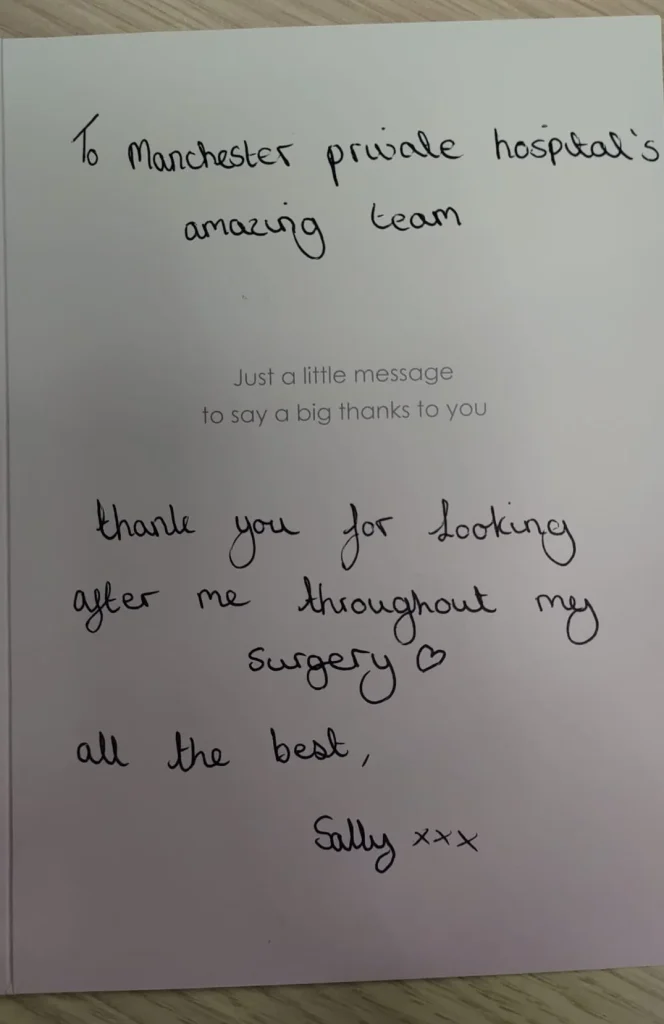 To Manchester private hospital's
amazing team
Just a little message
to say a big thanks to you
thank you for looking
after me throughout my
surgery ♡
all the best,
Sally xxx